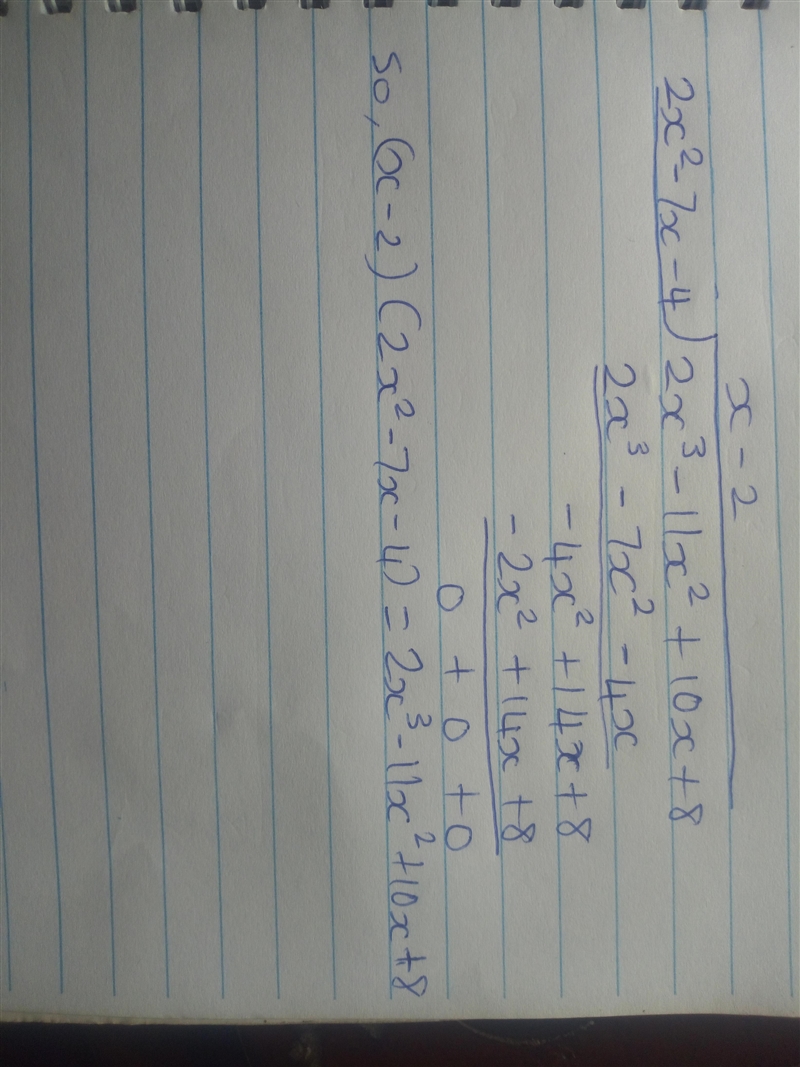 x - 2
2x² - 7x - 4) 2x³ - 11x² + 10x + 8
2x³ - 7x² - 4x
- 4x² + 14x + 8
- 2x² + 14x + 8
0 + 0 + 0
so, (x - 2) (2x² - 7x - 4) = 2x³ - 11x² + 10x + 8